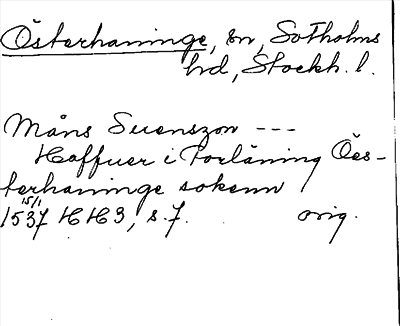 Österhaninge, sn, Sotholms
hd, Stockh. l.
Måns Suenszon ---
Haffuer i Forläning Öes-
terhaninge sokenn
15/1
1537 HH3, s. 7. orig.